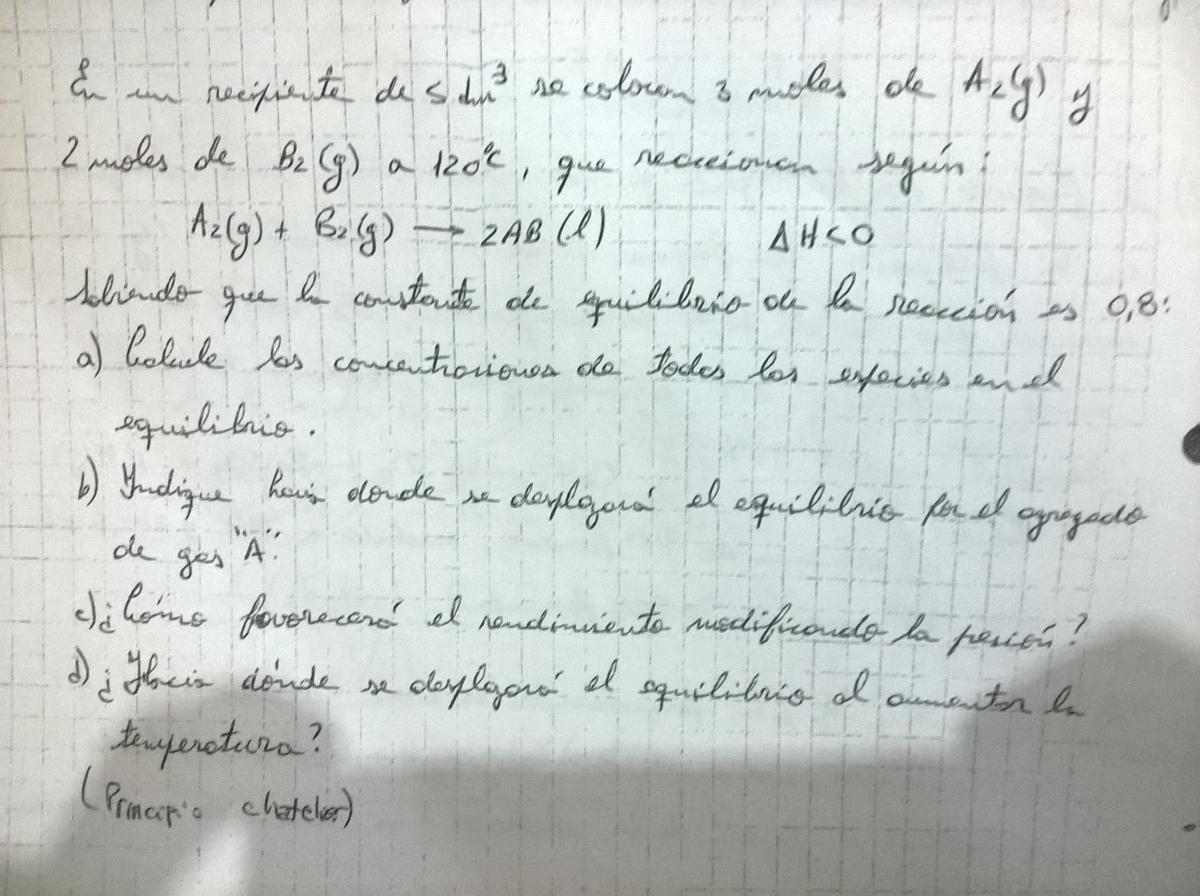 En un recipiente de 5 dm³ se colocan 3 moles de A₂(g) y
2 moles de B₂(g) a 120°C, que reaccionan según:
A₂(g) + B₂(g) → 2AB (l) ΔH<0
Sabiendo que la constante de equilibrio de la reacción es 0,8:
a) Calcule las concentraciones de todas las especies en el
equilibrio.
b) Indique hacia donde se desplazará el equilibrio por el agregado
de gas "A".
c) ¿Cómo favorecerá el rendimiento modificando la presión?
d) ¿Hacia dónde se desplazará el equilibrio al aumentar la
temperatura?
(Principio chatelier)